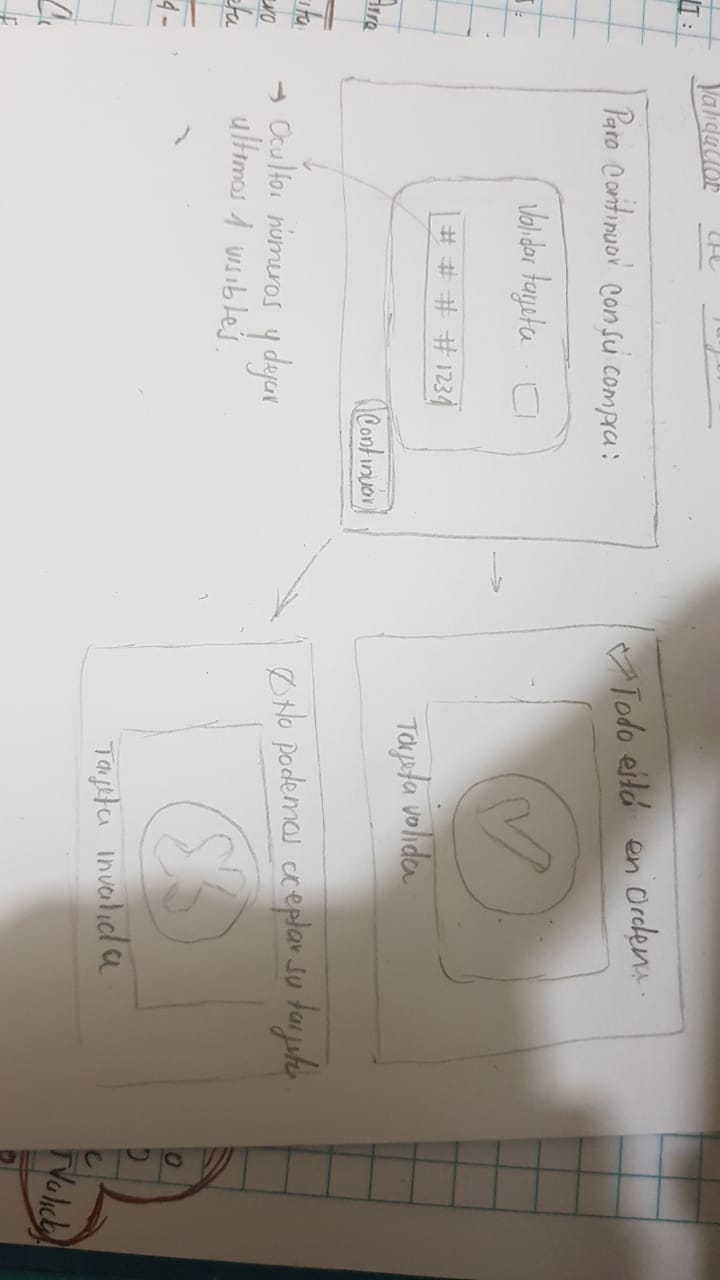 Validación de
Para continuar con su compra:
Validar tarjeta
# # # # 1234
Continuar
→ Ocultar números y dejar
ultimos 4 visibles.
Todo está en Orden.
Tarjeta valida
No podemos aceptar su tarjeta
Tarjeta invalida
Valida